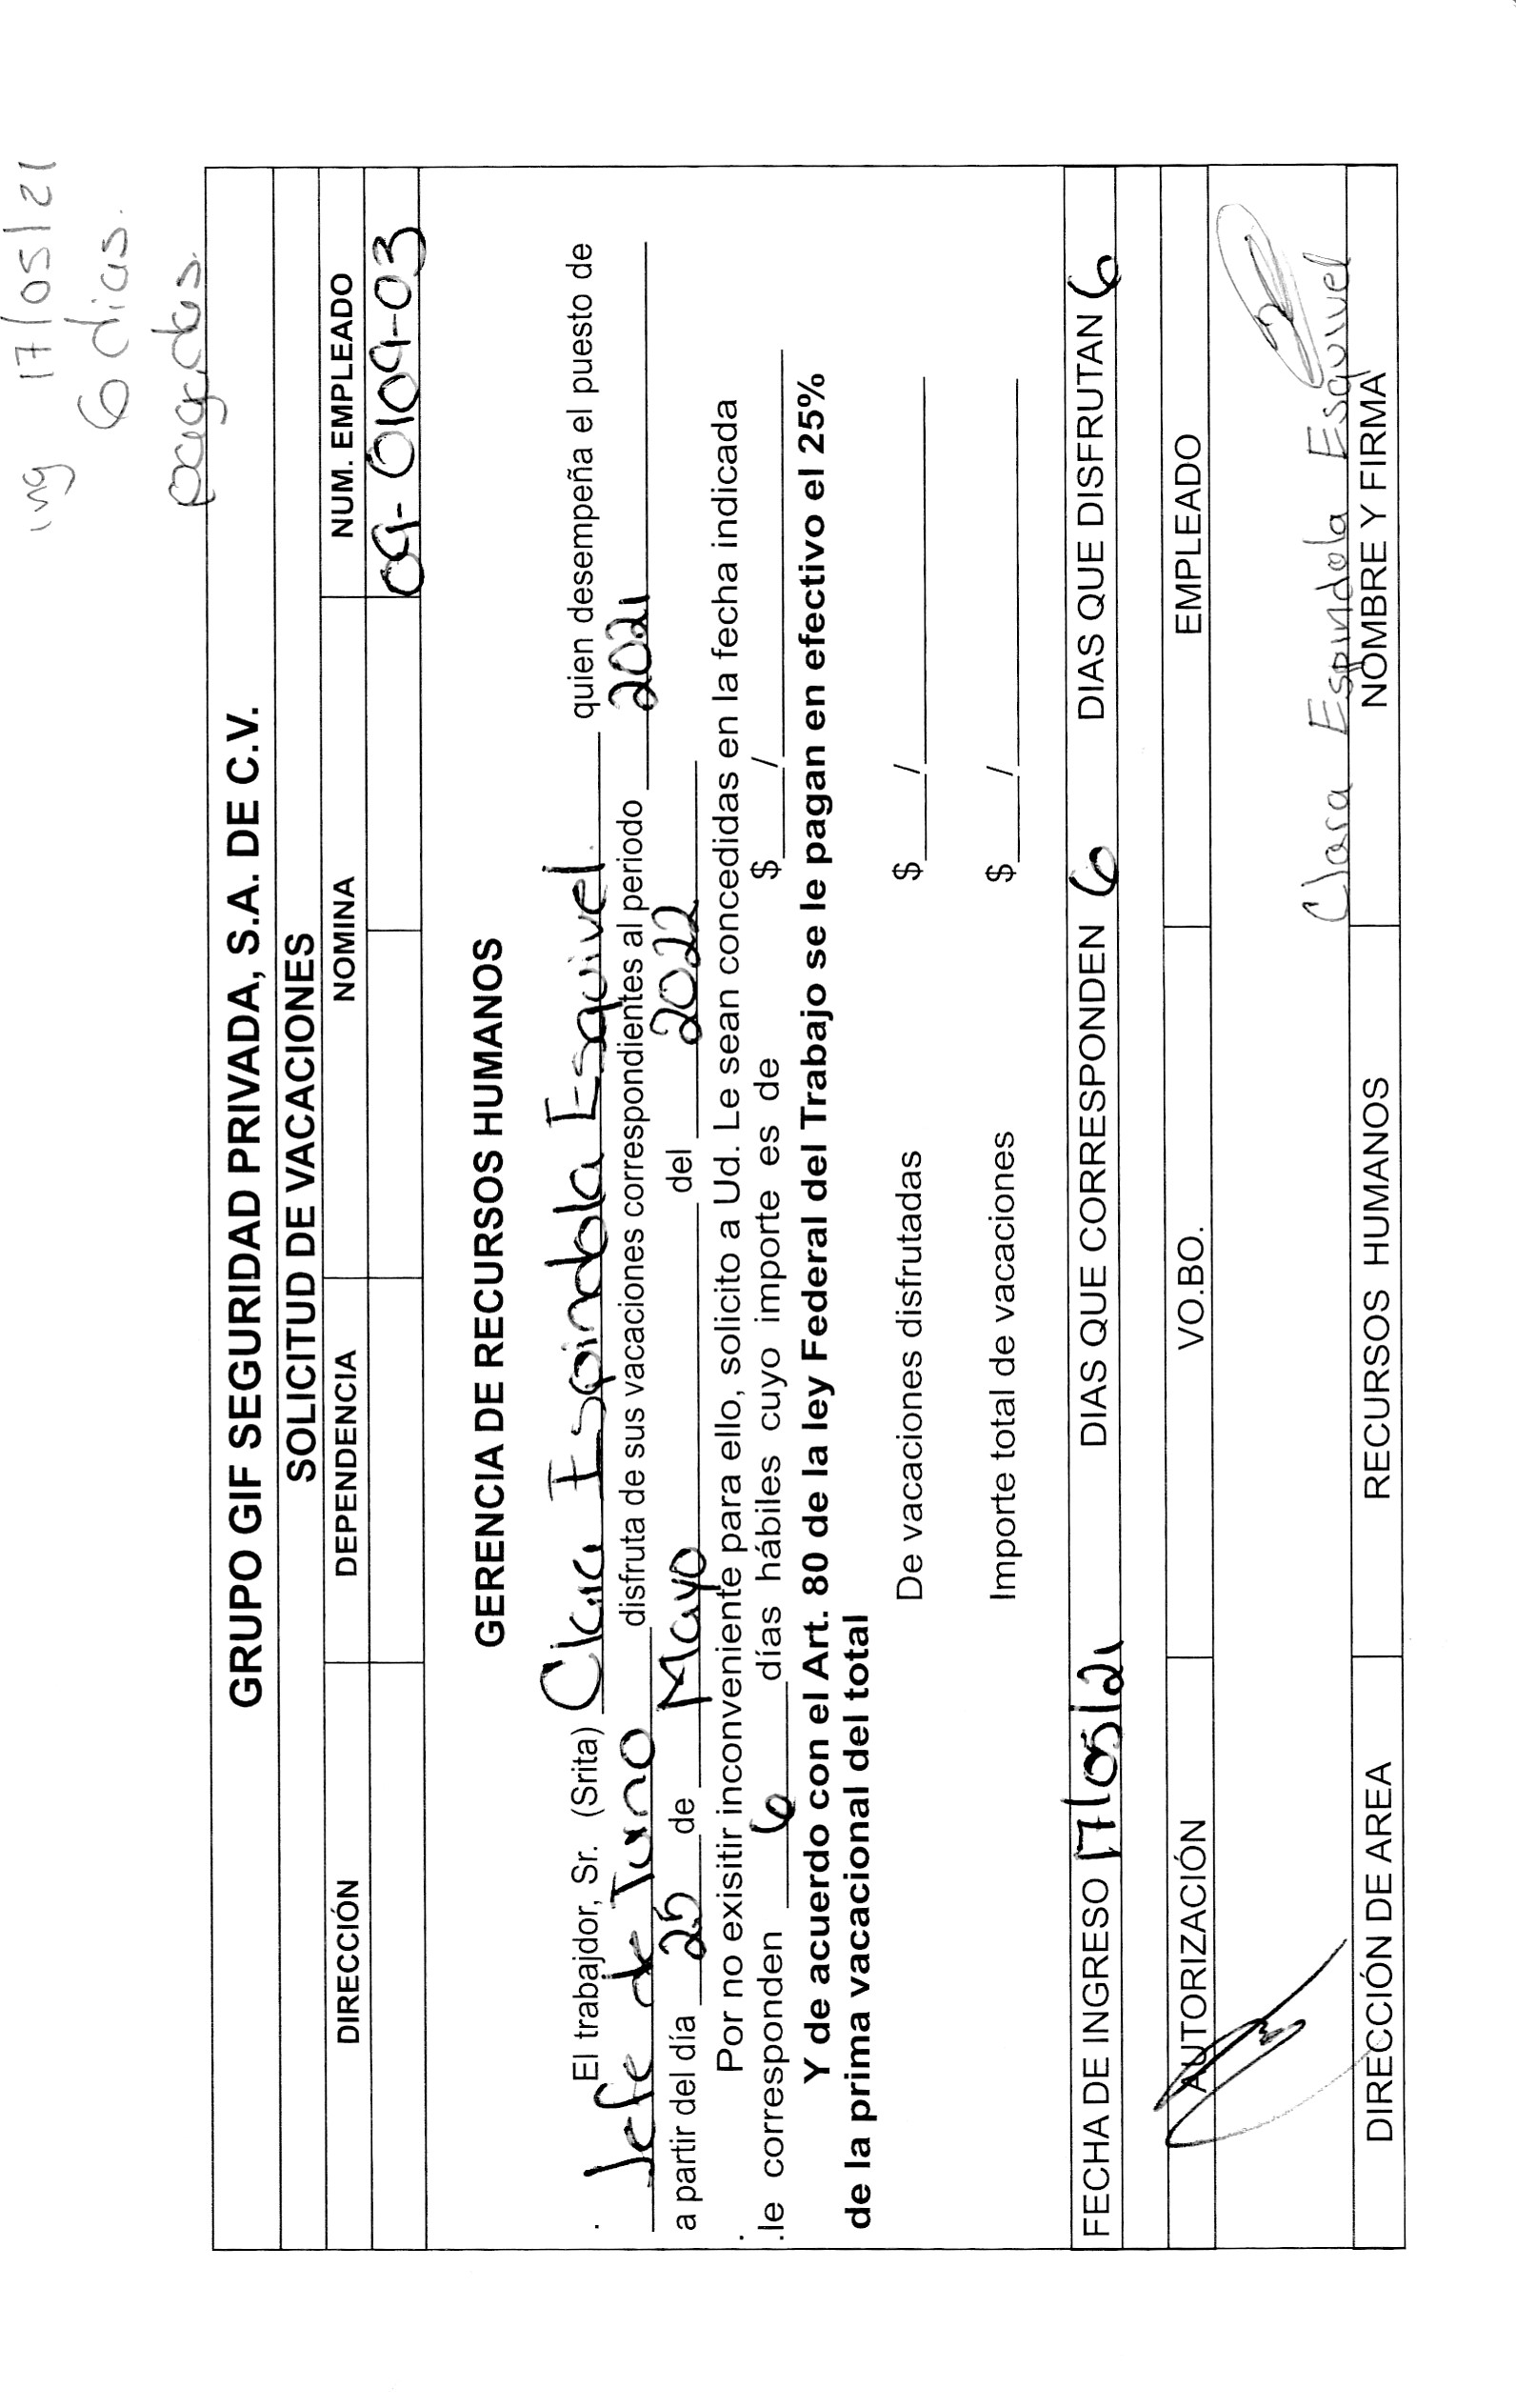 ing 17/05/21
6 dias.
pagados.
GRUPO GIF SEGURIDAD PRIVADA, S.A. DE C.V.
SOLICITUD DE VACACIONES
DIRECCIÓN DEPENDENCIA NOMINA NUM. EMPLEADO
09-0109-03
GERENCIA DE RECURSOS HUMANOS
El trabajdor, Sr. (Srita) Clara Espindola Esquivel. quien desempeña el puesto de
Jefe de Turno disfruta de sus vacaciones correspondientes al periodo 2021
a partir del día 25 de Mayo del 2022
Por no exisitir inconveniente para ello, solicito a Ud. Le sean concedidas en la fecha indicada
.le corresponden 6 días hábiles cuyo importe es de $ /
Y de acuerdo con el Art. 80 de la ley Federal del Trabajo se le pagan en efectivo el 25%
de la prima vacacional del total
De vacaciones disfrutadas $ /
Importe total de vacaciones $ /
FECHA DE INGRESO 17/05/21 DIAS QUE CORRESPONDEN 6 DIAS QUE DISFRUTAN 6
AUTORIZACIÓN VO.BO. EMPLEADO
Clara Espindola Esquivel
DIRECCIÓN DE AREA RECURSOS HUMANOS NOMBRE Y FIRMA